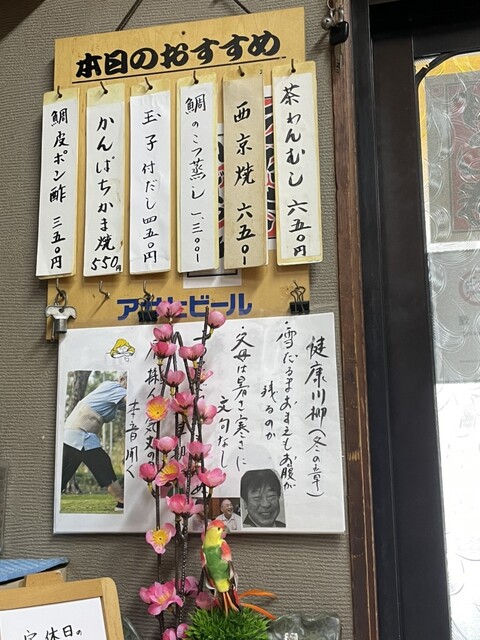 本日のおすすめ
茶わんむし 六五〇円
西京焼 六五〇ー
鯛のこつ蒸し 一、三〇〇ー
玉子付だし 四五〇円
かんぱちかま焼 550円
鯛皮ポン酢 三五〇円
アサヒビール
健康川柳(冬の章)
・雪だるまおまえもお腹が
残るのか
・父母は暑さ寒さに
文句なし
本音聞く
定休日の